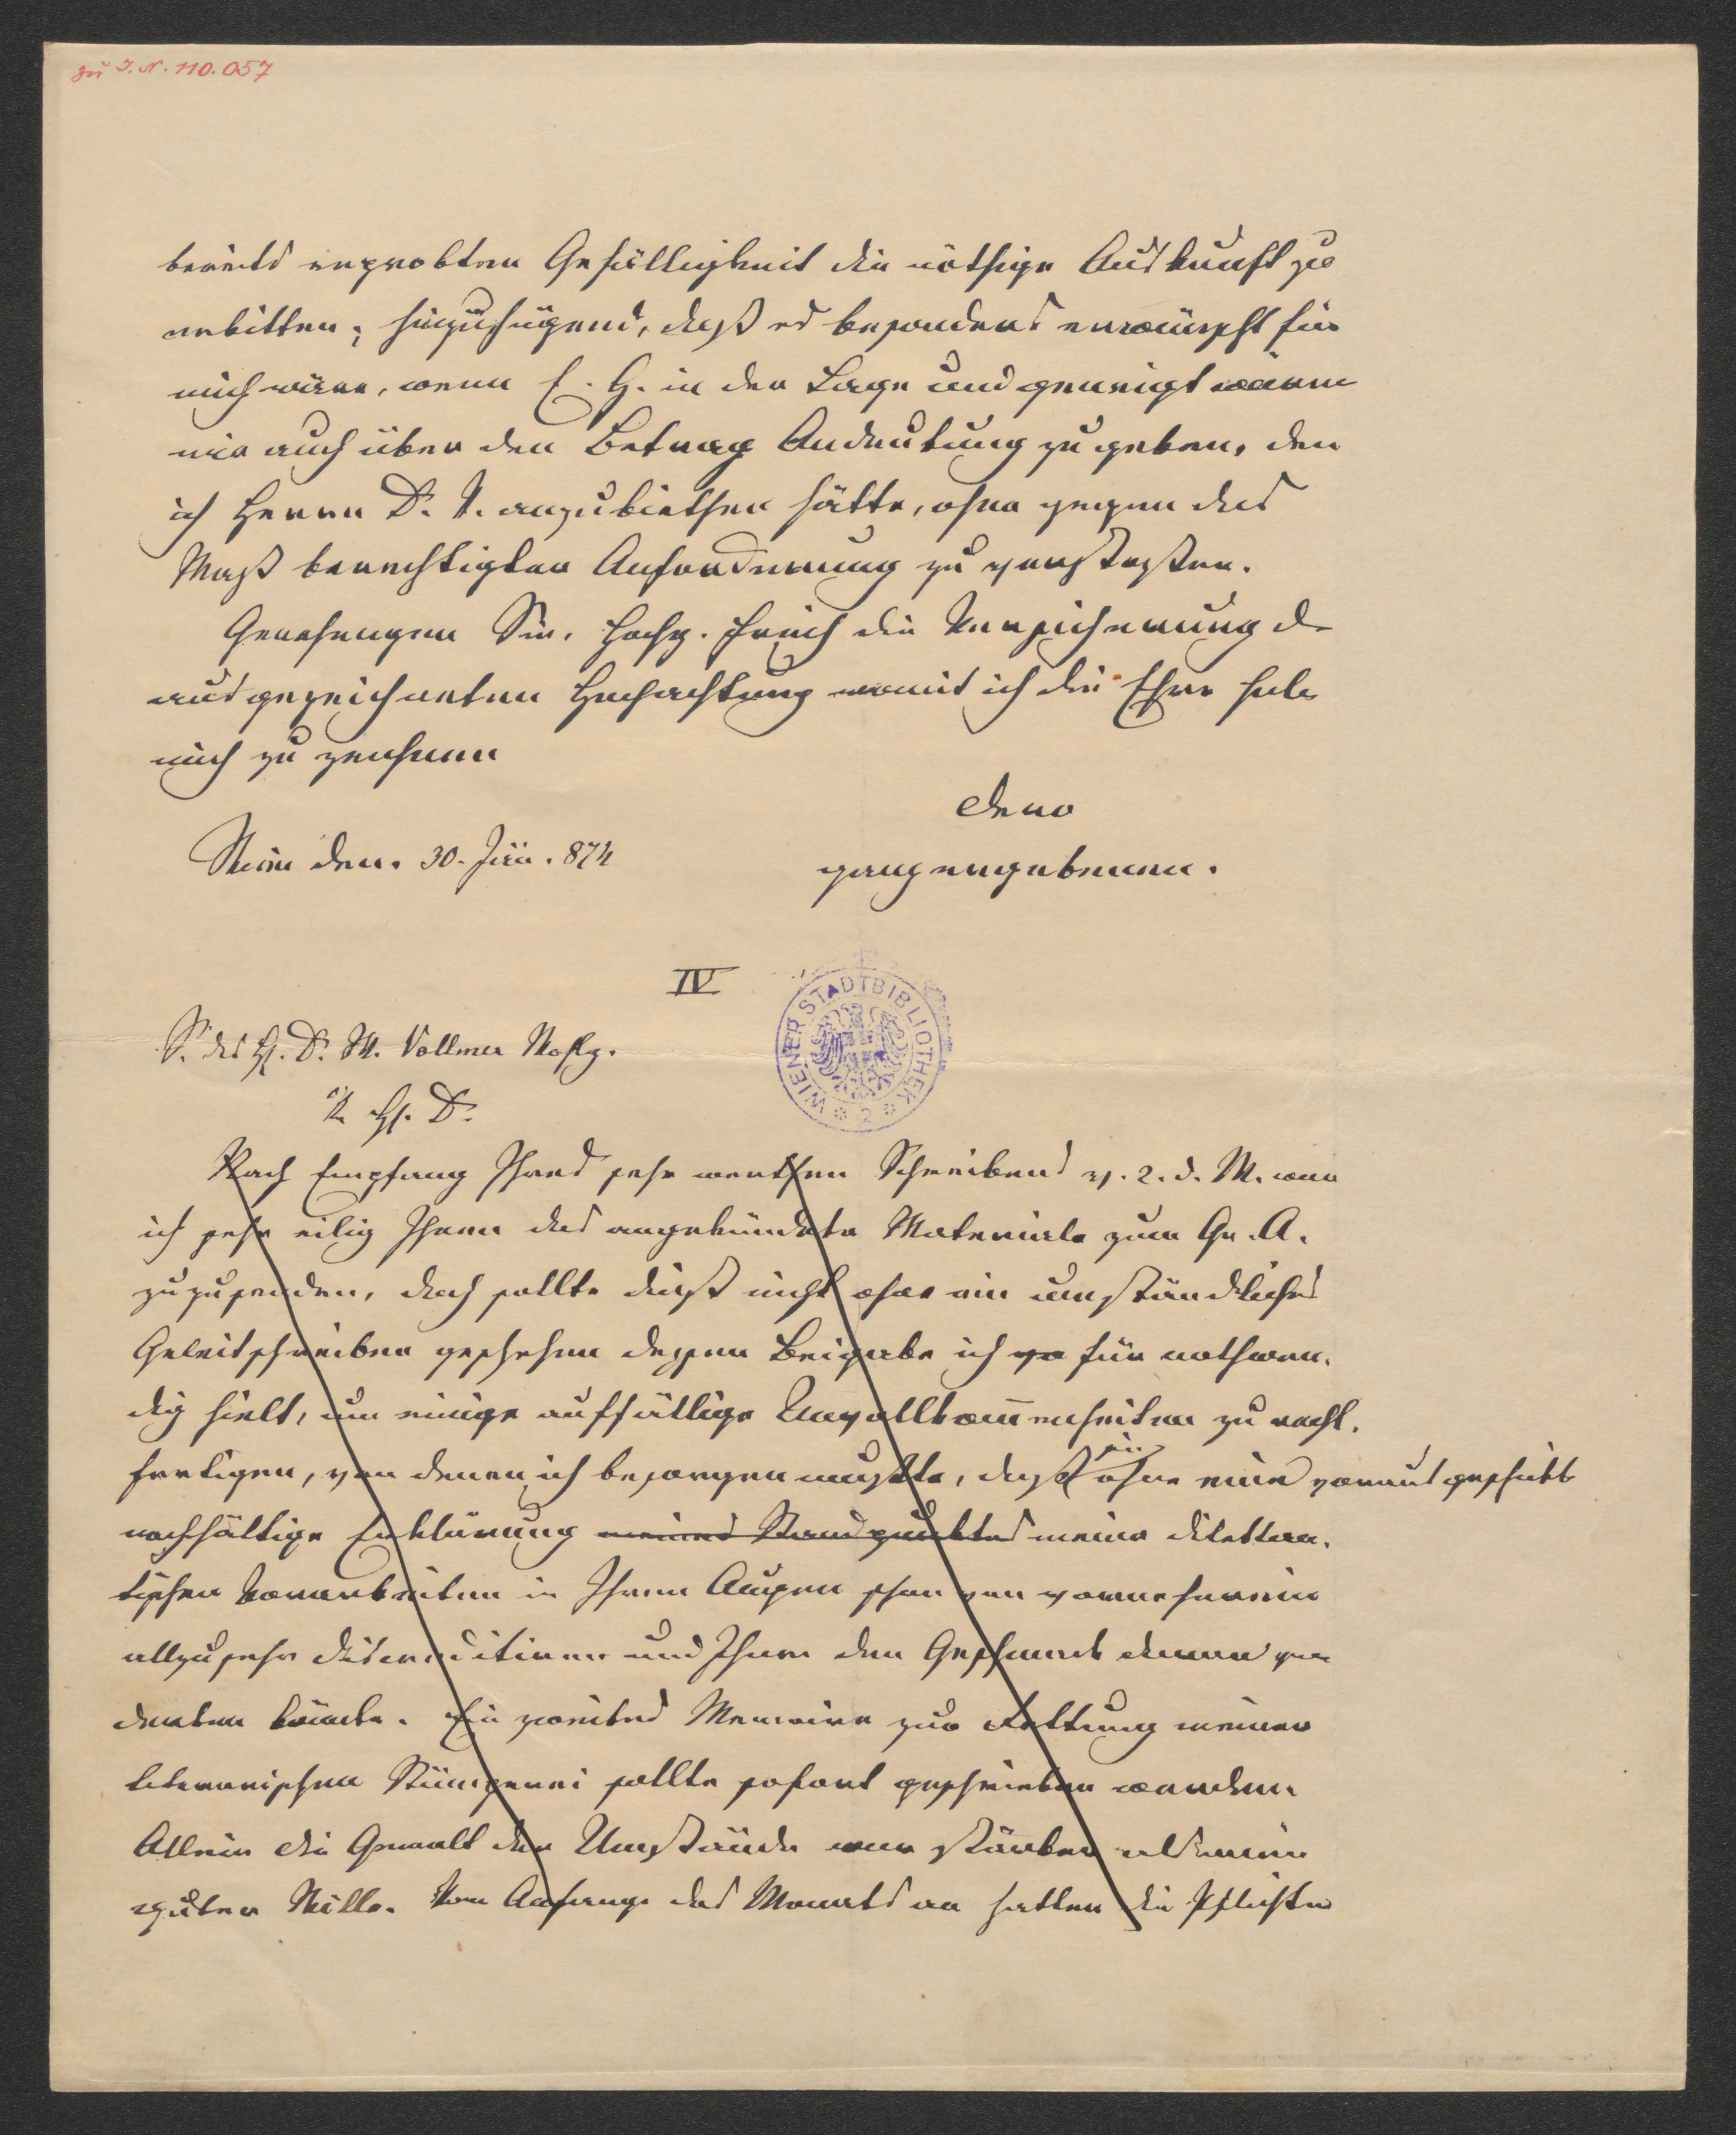 zu I. N. 110.057
bereits erprobten Gefälligkeit die nöthige Auskunft zu
erbitten; hinzufügend, daß es besonders erwünscht für
mich wäre, wenn E. H. in der Lage und geneigt wären
mir auch über den Betrag Andeutung zu geben, den
ich Herrn D. V. anzubiethen hätte, ohne gegen das
Maß berechtigter Anforderung zu verstoßen.
Genehmigen Sie, hochg. Freih die Versicherung d
ausgezeichneten Hochachtung womit ich die Ehre habe
mich zu zeichnen
Dero
Wien den. 30. Juni. 874
ganz ergebenen.
IV
WIENER STADTBIBLIOTHEK
S. des H. Dr. W. Vollmer Wohlg.
H. Dr.
Nach Empfang Ihres sehr werthen Schreibens v. 2. d. M. war
ich sehr eilig Ihnen das angekündete Materiale zum Gr. A.
zuzusenden, doch sollte dieß nicht ohne ein umständliches
Geleitschreiben geschehen dessen Beigabe ich für nothwen-
dig hielt, um einige auffällige Unvollkom̅enheiten zu recht-
fertigen, von denen ich besorgen mußte, daß sie ohne eine vorausgeschickte
nachhältige Erklärung meines Standpunktes meine dilettan-
tischen Vorarbeiten in Ihren Augen schon von vorneherein
allzusehr discreditiren und Ihnen den Geschmack daran ver
derben könnte. Ein zweites Memoire zur Rettung meiner
literarischen Stümperei sollte sofort geschrieben werden.
Allein die Gewalt der Umstände war stärker als mein
guter Wille. Vom Anfange des Monats an hatten die Pflichten